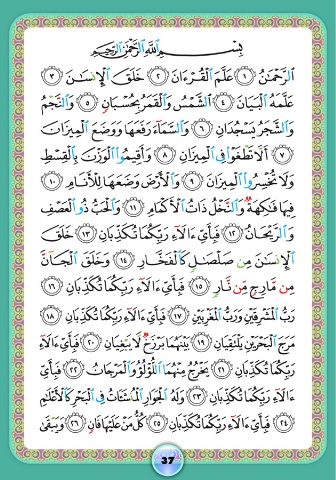 بِسْمِ ٱللَّهِ ٱلرَّحْمَٰنِ ٱلرَّحِيمِ
ٱلرَّحْمَٰنُ ١ عَلَّمَ ٱلْقُرْءَانَ ٢ خَلَقَ ٱلْإِنسَٰنَ ٣
عَلَّمَهُ ٱلْبَيَانَ ٤ ٱلشَّمْسُ وَٱلْقَمَرُ بِحُسْبَانٍ ٥ وَٱلنَّجْمُ
وَٱلشَّجَرُ يَسْجُدَانِ ٦ وَٱلسَّمَآءَ رَفَعَهَا وَوَضَعَ ٱلْمِيزَانَ
٧ أَلَّا تَطْغَوْا۟ فِى ٱلْمِيزَانِ ٨ وَأَقِيمُوا۟ ٱلْوَزْنَ بِٱلْقِسْطِ
وَلَا تُخْسِرُوا۟ ٱلْمِيزَانَ ٩ وَٱلْأَرْضَ وَضَعَهَا لِلْأَنَامِ ١٠
فِيهَا فَٰكِهَةٌ وَٱلنَّخْلُ ذَاتُ ٱلْأَكْمَامِ ١١ وَٱلْحَبُّ ذُو ٱلْعَصْفِ
وَٱلرَّيْحَانُ ١٢ فَبِأَىِّ ءَالَآءِ رَبِّكُمَا تُكَذِّبَانِ ١٣ خَلَقَ
ٱلْإِنسَٰنَ مِن صَلْصَٰلٍ كَٱلْفَخَّارِ ١٤ وَخَلَقَ ٱلْجَآنَّ
مِن مَّارِجٍ مِّن نَّارٍ ١٥ فَبِأَىِّ ءَالَآءِ رَبِّكُمَا تُكَذِّبَانِ ١٦
رَبُّ ٱلْمَشْرِقَيْنِ وَرَبُّ ٱلْمَغْرِبَيْنِ ١٧ فَبِأَىِّ ءَالَآءِ رَبِّكُمَا تُكَذِّبَانِ ١٨
مَرَجَ ٱلْبَحْرَيْنِ يَلْتَقِيَانِ ١٩ بَيْنَهُمَا بَرْزَخٌ لَّا يَبْغِيَانِ ٢٠ فَبِأَىِّ ءَالَآءِ
رَبِّكُمَا تُكَذِّبَانِ ٢١ يَخْرُجُ مِنْهُمَا ٱللُّؤْلُؤُ وَٱلْمَرْجَانُ ٢٢ فَبِأَىِّ
ءَالَآءِ رَبِّكُمَا تُكَذِّبَانِ ٢٣ وَلَهُ ٱلْجَوَارِ ٱلْمُنشَـَٔاتُ فِى ٱلْبَحْرِ كَٱلْأَعْلَٰمِ
٢٤ فَبِأَىِّ ءَالَآءِ رَبِّكُمَا تُكَذِّبَانِ ٢٥ كُلُّ مَنْ عَلَيْهَا فَانٍ ٢٦ وَيَبْقَىٰ
37